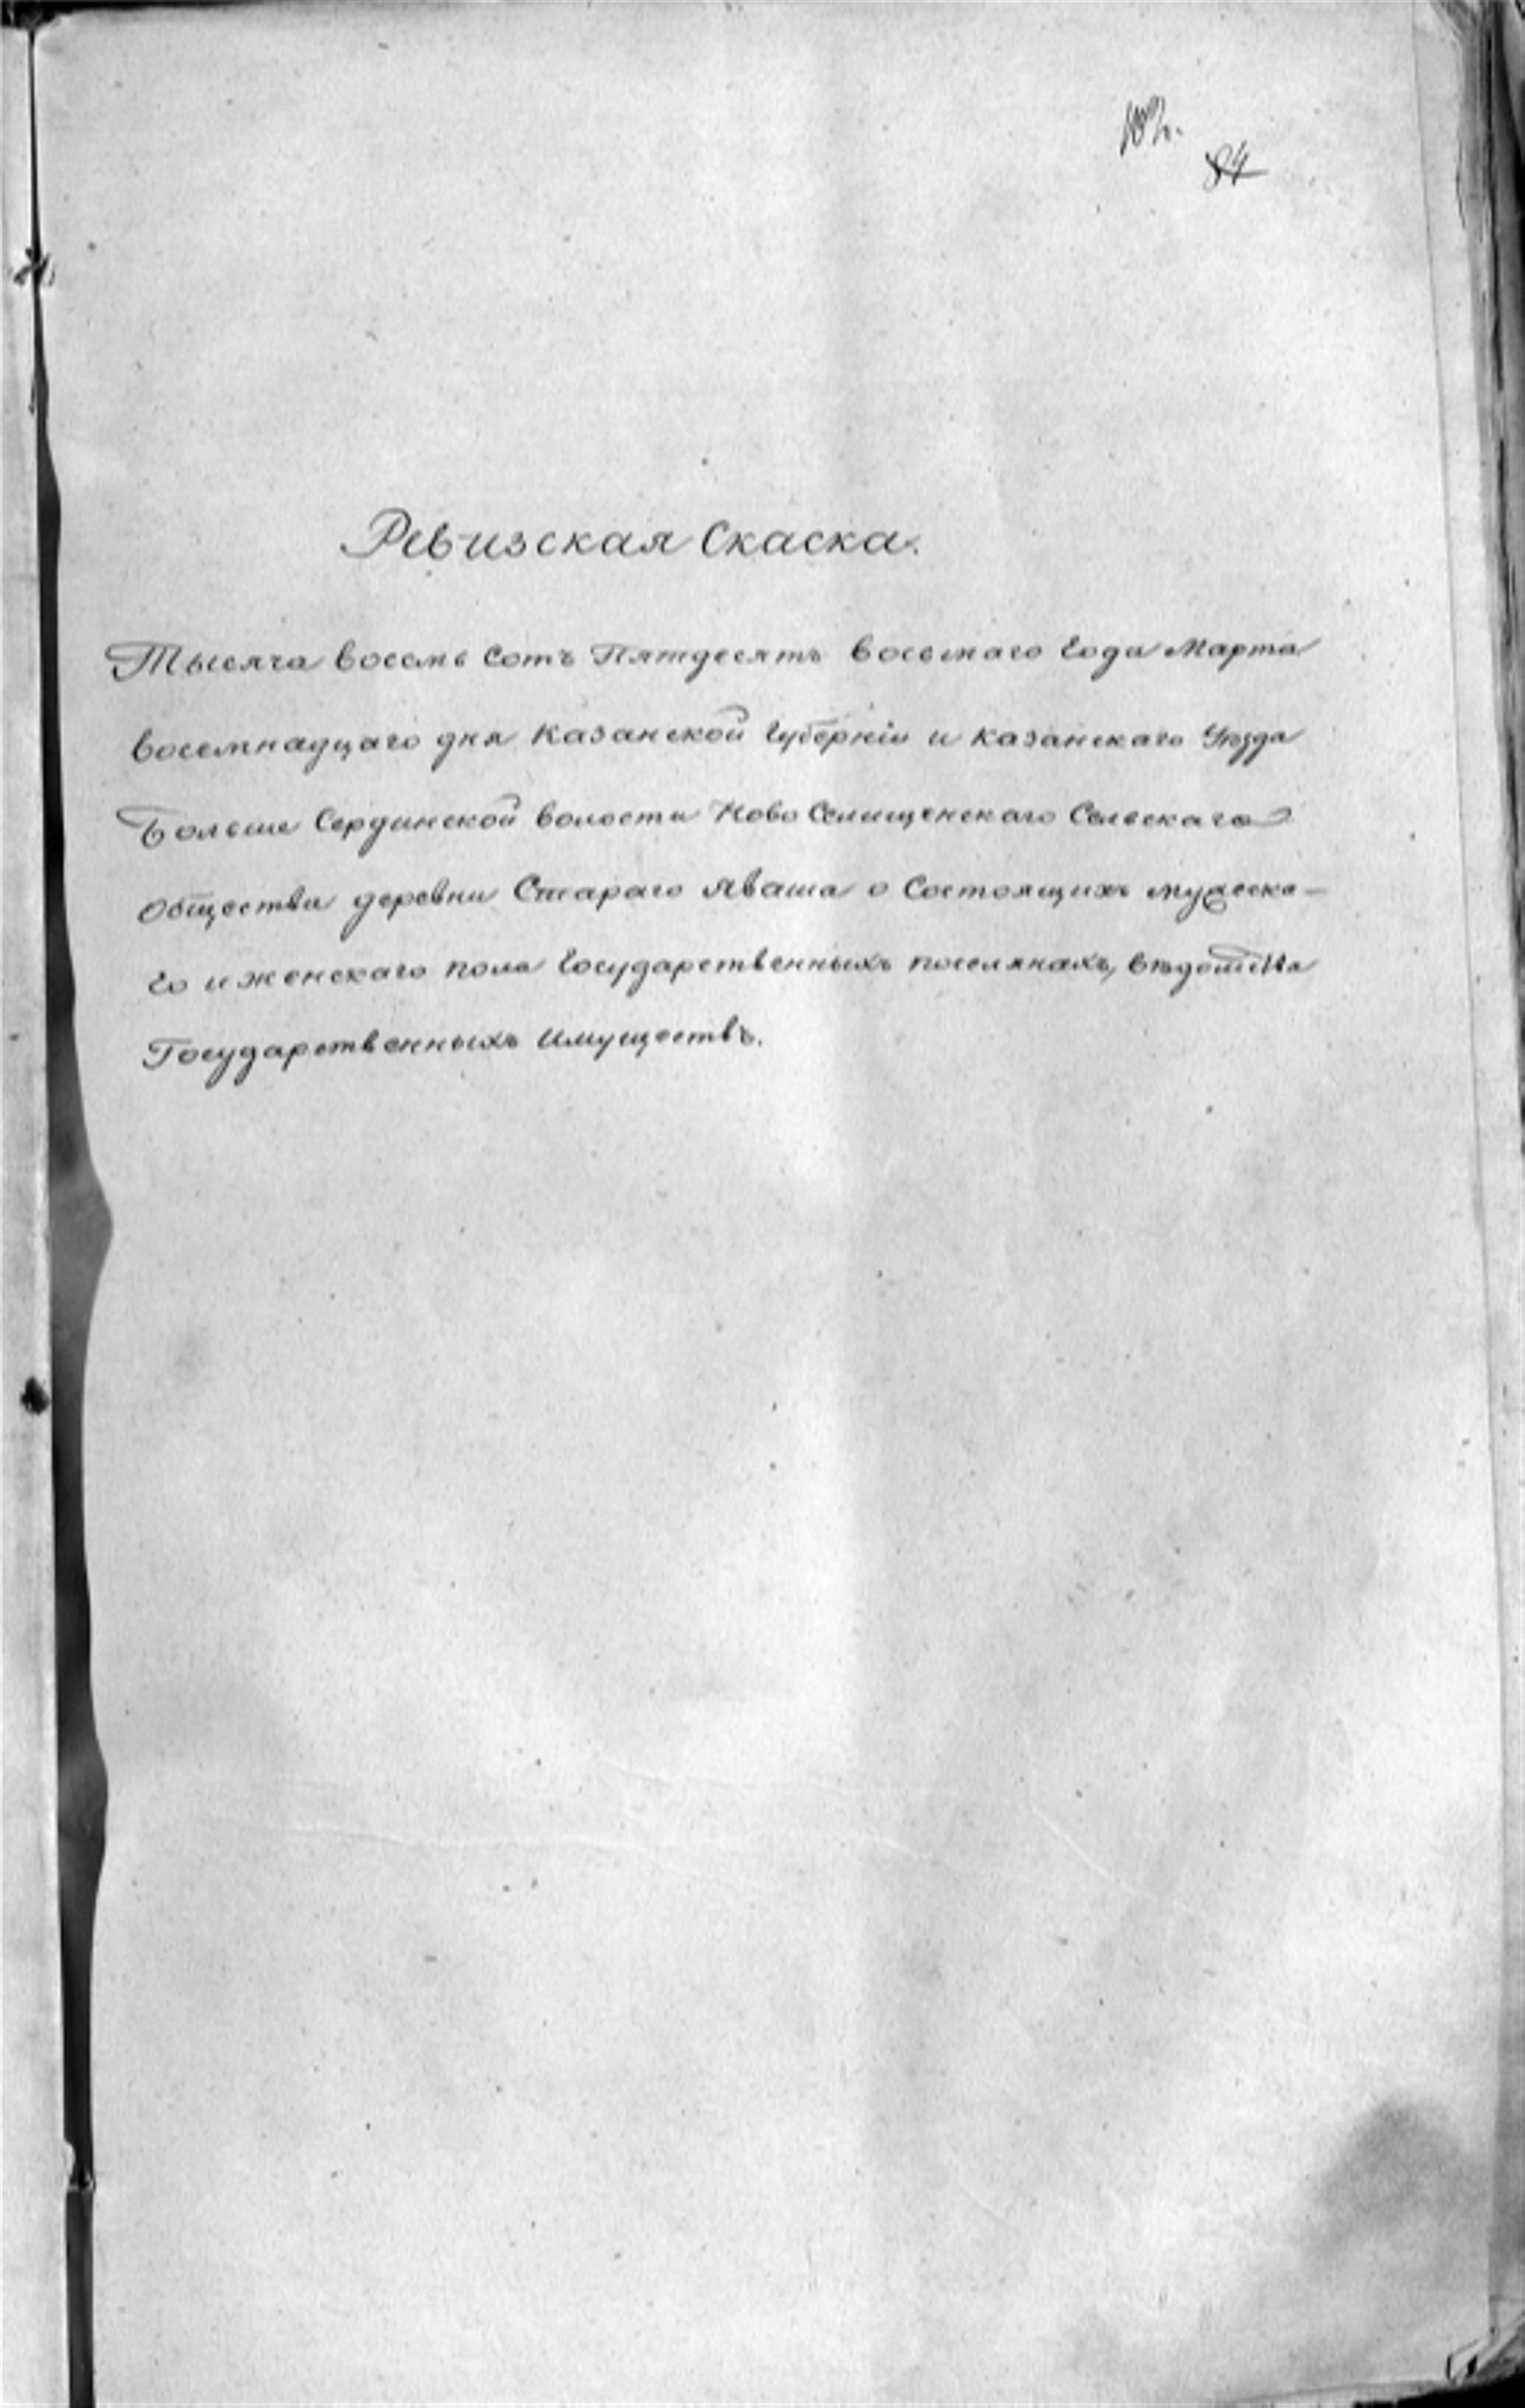 84
Ревизская Скаска.
Тысяча восемь сотъ Пятдесятъ восьмаго года Марта
восемнадцаго дня Казанской губерніи и Казанскаго Уѣзда
Больше Сердинской волости Ново Селищенскаго Сельскаго
Общества деревни Стараго Яваша о Состоящихъ мужеска-
го и женскаго пола государственныхъ поселянахъ, вѣдомства
Государственныхъ Имуществъ.